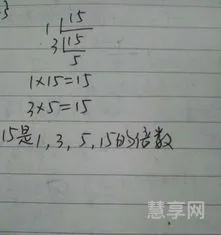 1 15
3 15
5
1×15=15
3×5=15
15是1,3,5,15的倍数
慧享网